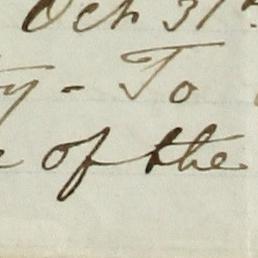 Oct 31st
ty - To
e of the